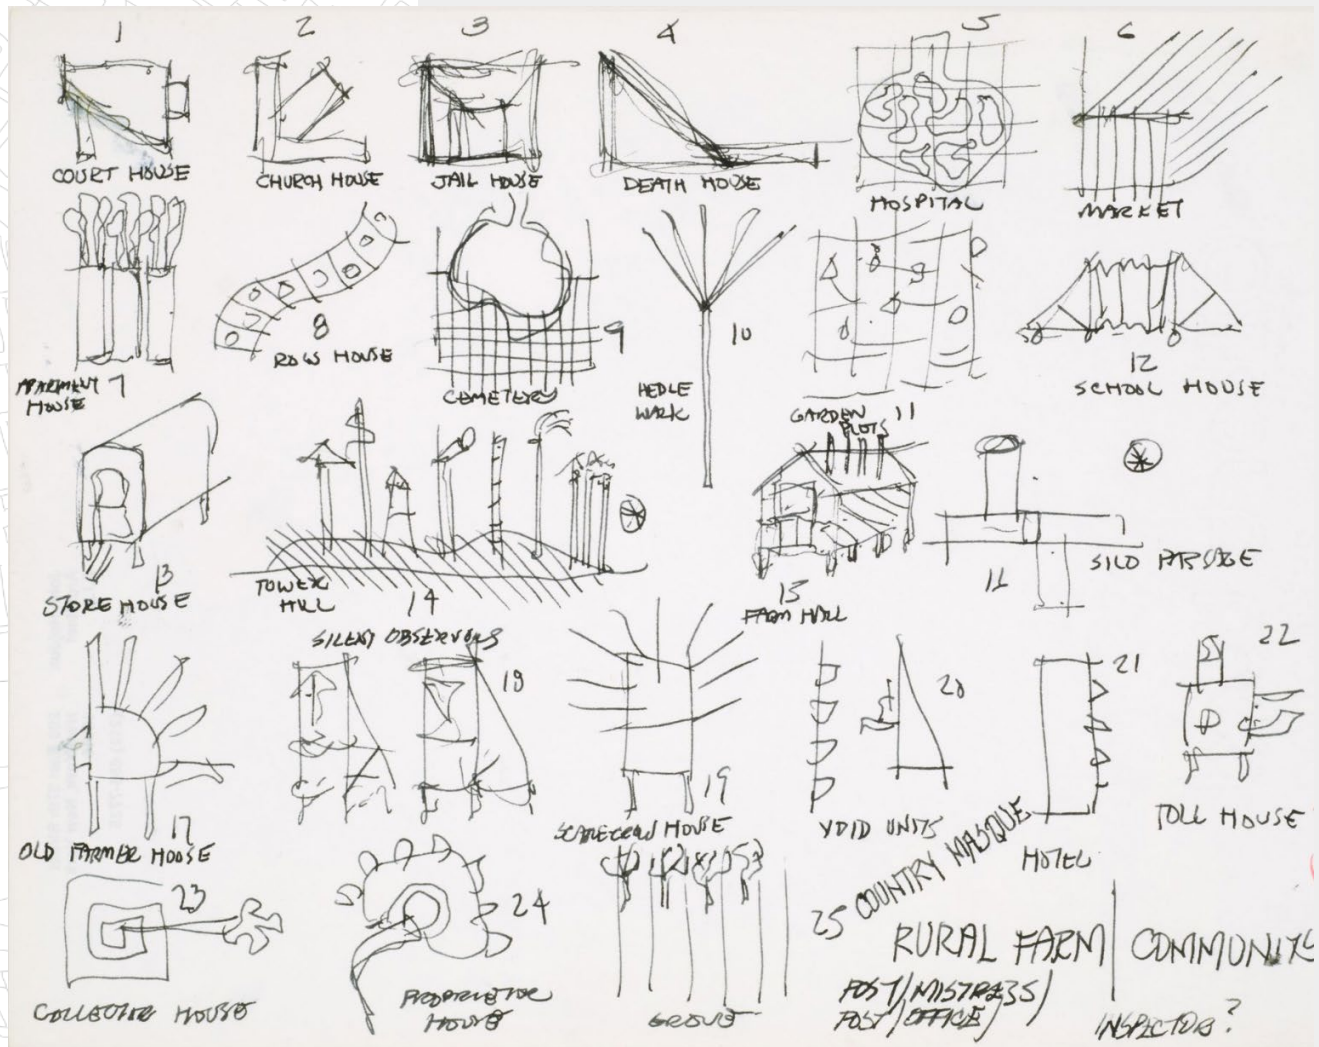 1 2 3 4 5 6
COURT HOUSE
CHURCH HOUSE
JAIL HOUSE
DEATH HOUSE
HOSPITAL
MARKET
7
APARTMENT
HOUSE
8
ROW HOUSE
9
CEMETERY
10
HEDGE
WALK
11
GARDEN
PLOTS
12
SCHOOL HOUSE
13
STORE HOUSE
14
TOWER
HILL
15
FARM HALL
SILO PASSAGE
17
OLD FARMER HOUSE
18
SILENT OBSERVORS
19
SCARECROW HOUSE
20
VOID UNITS
21
HOTEL
22
TOLL HOUSE
23
COLLECTOR HOUSE
24
PROPRIETOR
HOUSE
GROUSE
25 COUNTRY MASQUE
RURAL FARM COMMUNITY
POST/MISTRESS/
POST/OFFICE/
INSPECTOR?